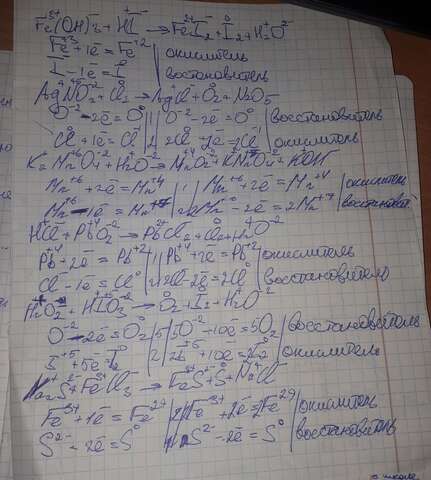 Fe(OH)₃ + HI → FeI₂ + I₂ + H₂O
Fe⁺³ + 1ē = Fe⁺² | окислитель
I⁻ - 1ē = I⁰ | востоновитель
AgNO₃ + Cl₂ → AgCl + O₂ + N₂O₅
O⁻² - 2ē = O⁰ | 1 | O⁻² - 2ē = O⁰ | восстоновитель
Cl⁰ + 1ē = Cl⁻ | 2 | 2Cl⁰ | окислитель
K₂MnO₄ + H₂O → MnO₂ + KMnO₄ + KOH
Mn⁺⁶ + 2ē = Mn⁺⁴ | 1 | Mn⁺⁶ + 2ē = Mn⁺⁴ | окислитель
Mn⁺⁶ - 1ē = Mn⁺⁷ | 2 | 2Mn⁺⁶ - 2ē = 2Mn⁺⁷ | восстоновит
HCl + PbO₂ → PbCl₂ + Cl₂ + H₂O
Pb⁺⁴ + 2ē = Pb⁺² | 1 | Pb⁺⁴ + 2ē = Pb⁺² | окислитель
Cl⁻ - 1ē = Cl⁰ | 2 | 2Cl - 2ē = 2Cl⁰ | восстоновитель
H₂O₂ + HIO₃ → O₂ + I₂ + H₂O
O⁻ - 2ē = O₂⁰ | 5 | 5O⁻² - 10ē = 5O₂ | восстоновитель
I⁺⁵ + 5ē = I⁰ | 2 | 2I⁺⁵ + 10ē = I₂⁰ | окислитель
Na₂S + FeCl₃ → FeS + S + NaCl
Fe³⁺ + 1ē = Fe²⁺ | 2 | 2Fe³⁺ + 2ē = 2Fe²⁺ | окислитель
S²⁻ - 2ē = S⁰ | 1 | S²⁻ - 2ē = S⁰ | восстоновитель